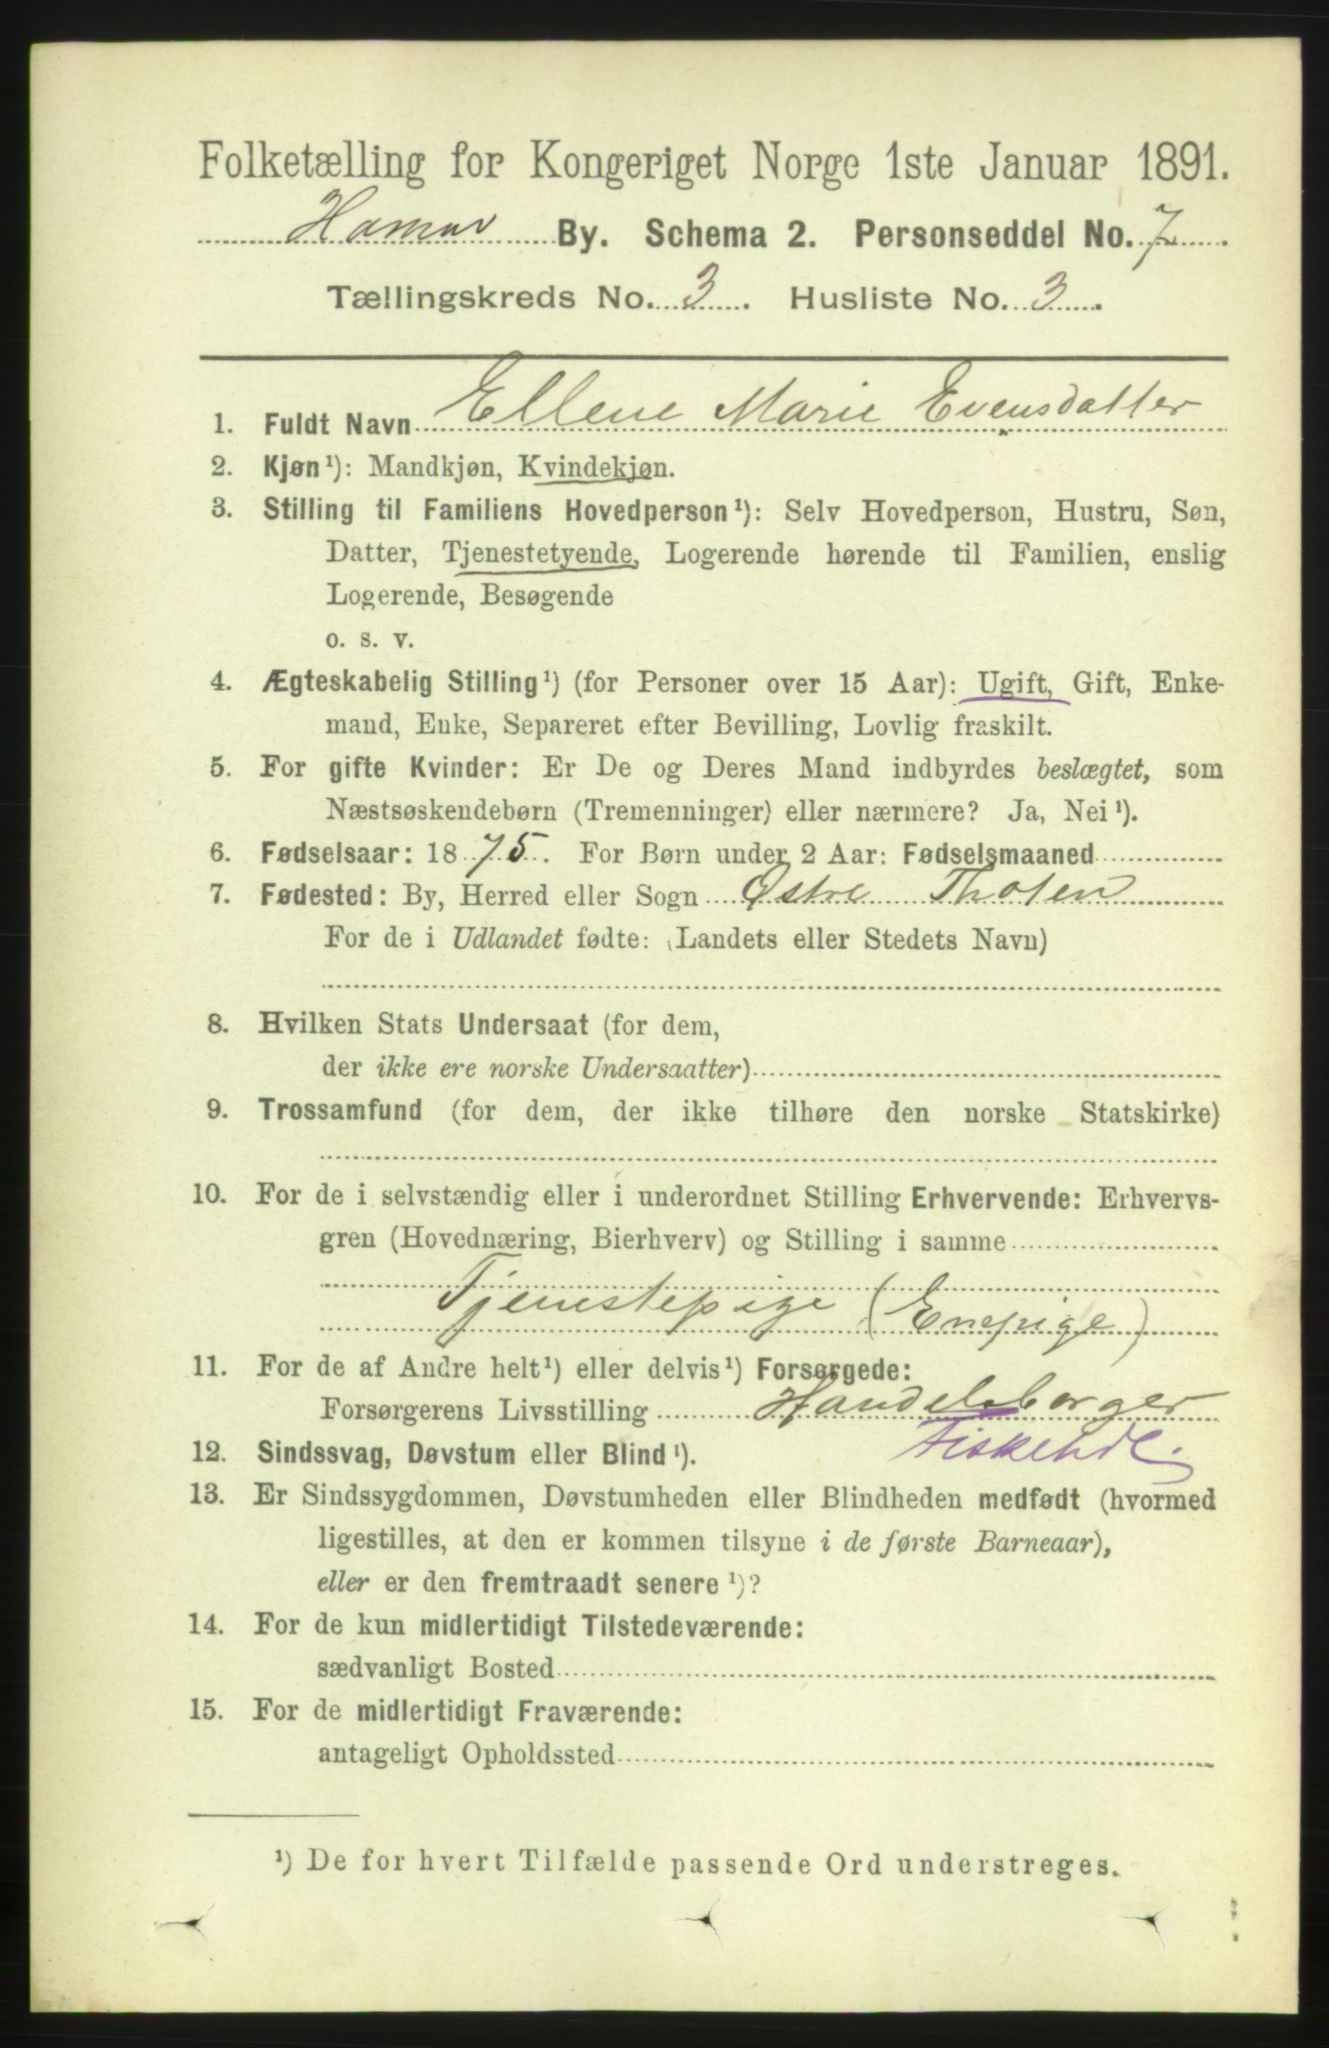 Folketælling for Kongeriget Norge 1ste Januar 1891.
Hamar By. Schema 2. Personseddel No. 7.
Tællingskreds No. 3. Husliste No. 3.
1. Fuldt Navn Ellene Marie Evensdatter
2. Kjøn¹): Mandkjøn, Kvindekjøn.
3. Stilling til Familiens Hovedperson¹): Selv Hovedperson, Hustru, Søn,
Datter, Tjenestetyende, Logerende hørende til Familien, enslig
Logerende, Besøgende
o. s. v.
4. Ægteskabelig Stilling¹) (for Personer over 15 Aar): Ugift, Gift, Enke-
mand, Enke, Separeret efter Bevilling, Lovlig fraskilt.
5. For gifte Kvinder: Er De og Deres Mand indbyrdes beslægtet, som
Næstsøskendebørn (Tremenninger) eller nærmere? Ja, Nei¹).
6. Fødselsaar: 1875. For Børn under 2 Aar: Fødselsmaaned
7. Fødested: By, Herred eller Sogn Østre Thoten
For de i Udlandet fødte: (Landets eller Stedets Navn)
8. Hvilken Stats Undersaat (for dem,
der ikke ere norske Undersaatter)
9. Trossamfund (for dem, der ikke tilhøre den norske Statskirke)
10. For de i selvstændig eller i underordnet Stilling Erhvervende: Erhvervs-
gren (Hovednæring, Bierhverv) og Stilling i samme
Tjenestepige (Enepige)
11. For de af Andre helt¹) eller delvis¹) Forsørgede:
Forsørgerens Livsstilling Handelsborger
Fiskehdl.
12. Sindssvag, Døvstum eller Blind¹).
13. Er Sindssygdommen, Døvstumheden eller Blindheden medfødt (hvormed
ligestilles, at den er kommen tilsyne i de første Barneaar),
eller er den fremtraadt senere¹)?
14. For de kun midlertidigt Tilstedeværende:
sædvanligt Bosted
15. For de midlertidigt Fraværende:
antageligt Opholdssted
¹) De for hvert Tilfælde passende Ord understreges.